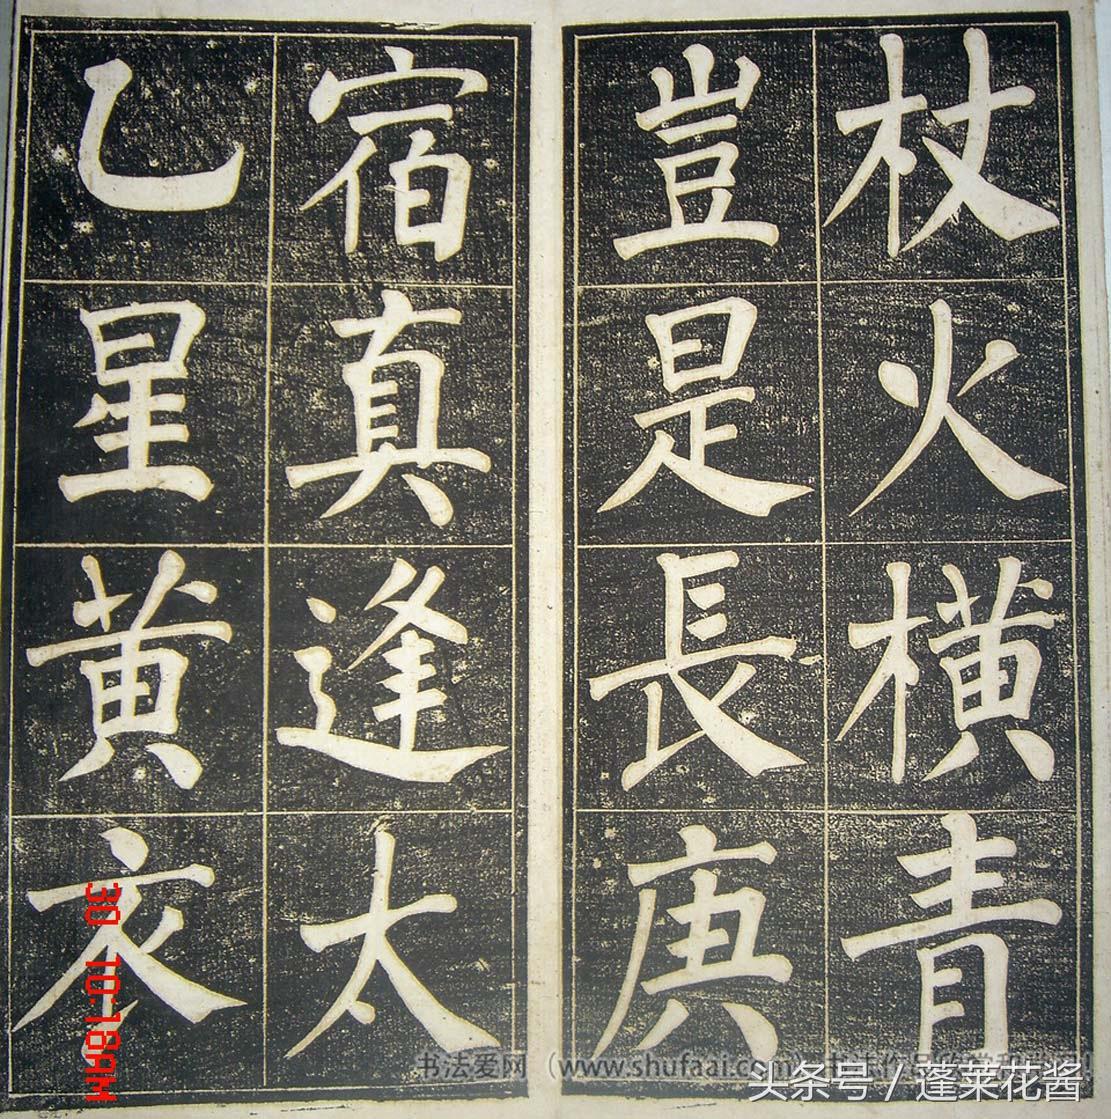 杖火橫青
豈是長庚
宿真逢太
乙星黃衣
30 10:18AM
书法爱网（www.shufaai.com
头条号 / 蓬莱花酱